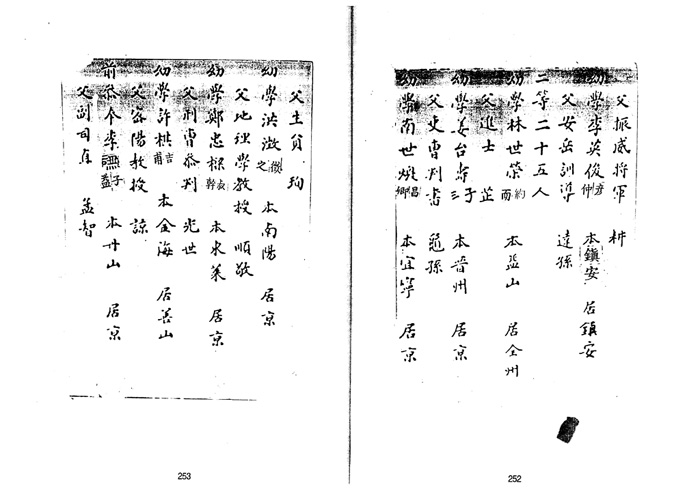 父振威將軍 耕
幼學李英俊 彦仲 本鎮安 居鎮安
父安岳訓導 達孫
二等二十五人
幼學林世榮 而約 本益山 居全州
父進士 芷
幼學姜台壽 子三 本晋州 居京
父吏曹判書 龜孫
幼學南世 昌卿 本宜寧 居京
252
父生員 珣
幼學洪澂 之 本南陽 居京
父地理學教授 順敬
幼學鄭忠樑 幹 本東萊 居京
父刑曹參判 光世
幼學許 本金海 居善山
父密陽教授 諒
前參奉李 子 本丹山 居京
父副司直 孟智
253